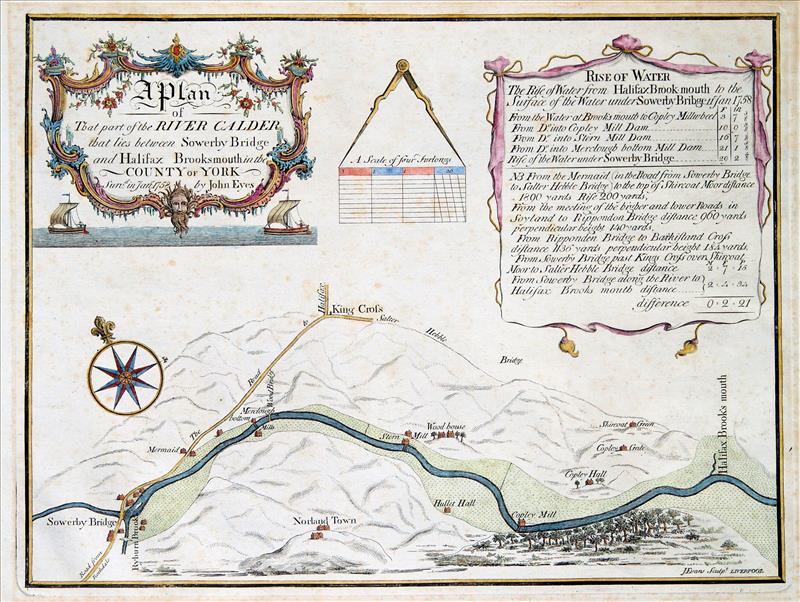 A Plan
of
That part of the RIVER CALDER
that lies between Sowerby Bridge
and Halifax Brooksmouth in the
COUNTY of YORK
Surv.d in Jan.y 1758 by John Eyes
A Scale of four Furlongs
RISE OF WATER
The Rise of Water from Halifax Brook mouth to the
Surface of the Water under Sowerby Bribge 11 Jan 1758
F in
From the Water at Brooks mouth to Copley Mill wheel 3 7
From D.o into Copley Mill Dam 10 0
From D.o into Stern Mill Dam 16 7
From D.o into Merclough bottom Mill Dam 21 1
Rise of the Water under Sowerby Bridge 20 2
NB From the Mermaid (in the Road from Sowerby Bridge
to Salter Hebble Bridge) to the top of Skircoat Moor distance
1800 yards Rise 200 yards,
From the meeting of the higher and lower Roads in
Soyland to Rippondon Bridge distance 960 yards
perpendicular height 140 yards,
From Ripponden Bridge to Barkisland Cross
distance 1136 yards perpendicular height 184 yards,
From Sowerby Bridge past Kings Cross over Skircoat
Moor to Salter Hebble Bridge distance 2 . 7 . 15
From Sowerby Bridge along the River to
Halifax Brooks mouth distance 2 . 4 . 34
difference 0 . 2 . 21
to Halifax
King Cross
Salter
Hebble
Bridge
The Road
Wood Bridge
Merclough
bottom
Mills
Mermaid
Stern Mill
Wood house
Skircoat Green
Copley Gate
Copley Hall
Halifax Brooks mouth
Sowerby Bridge
Ryburn Brook
Road from
Norland Town
Hullet Hall
Copley Mill
J Evans Sculp.t LIVERPOOL